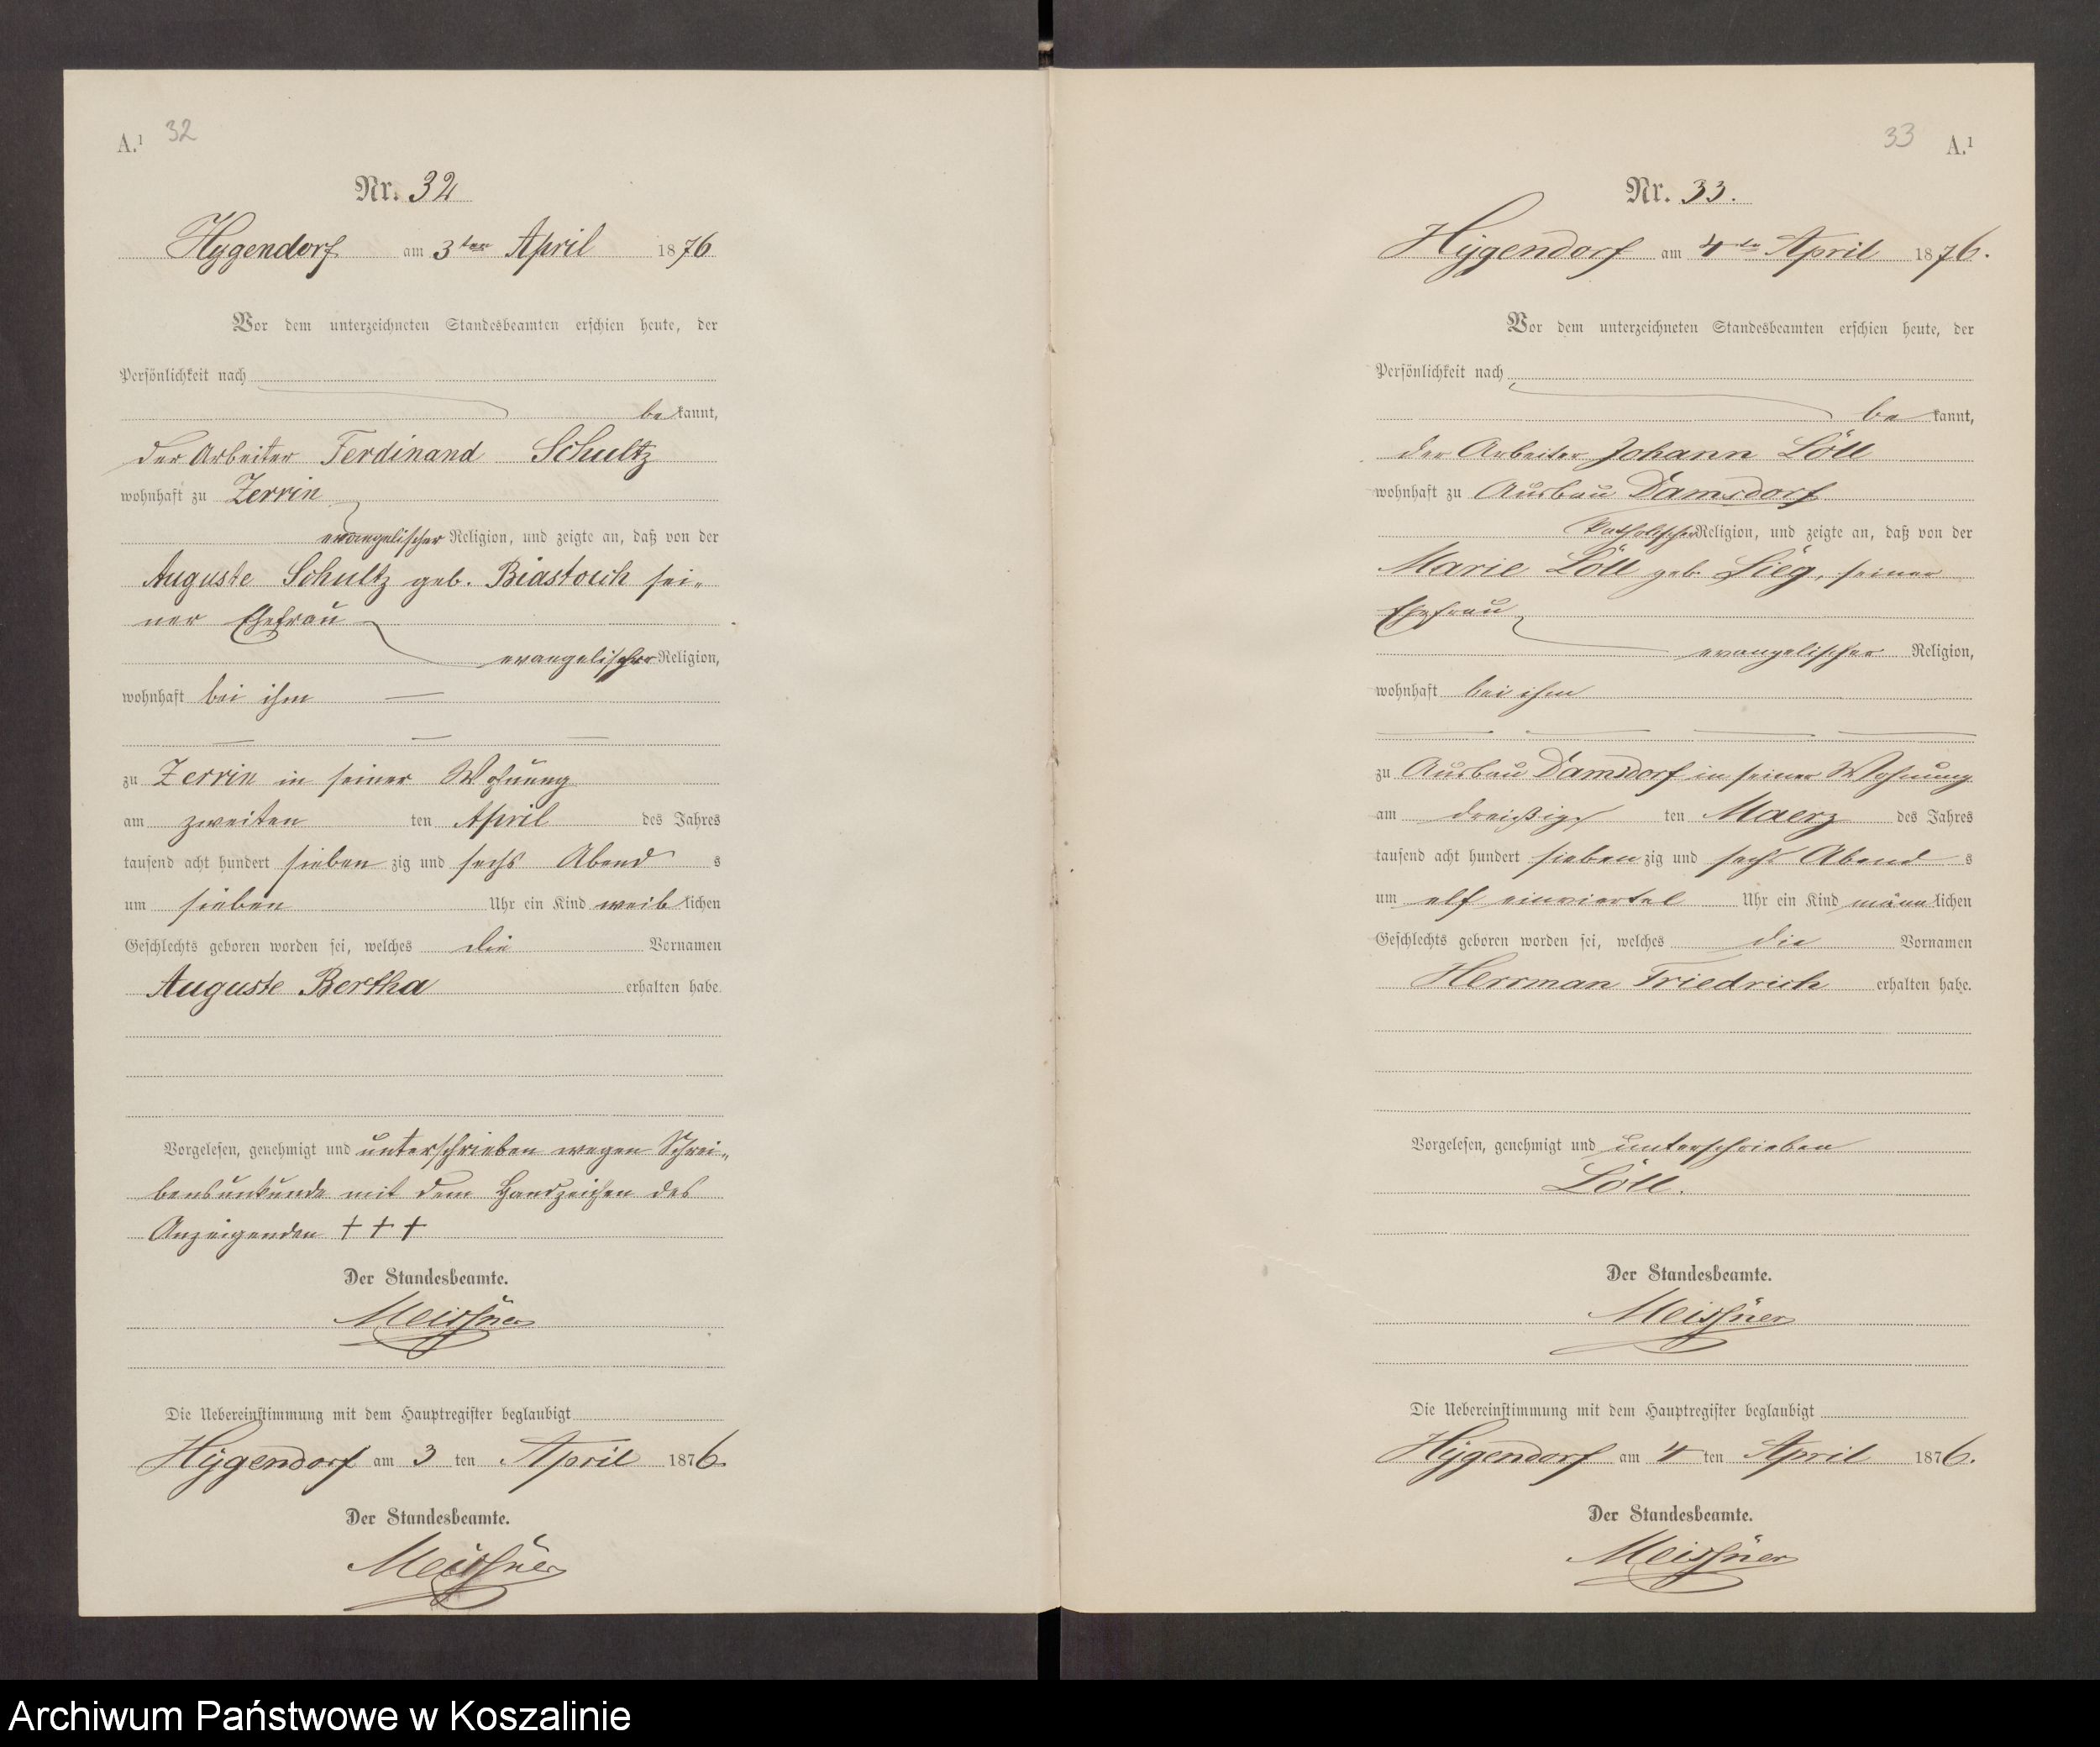 A.¹ 32
Nr. 32
Hygendorf am 3ten April 1876
Vor dem unterzeichneten Standesbeamten erschien heute, der
Persönlichkeit nach
bekannt,
der Arbeiter Ferdinand Schultz
wohnhaft zu Zerrin
evangelischer Religion, und zeigte an, daß von der
Auguste Schultz geb. Biastoch sei-
ner Ehefrau
evangelischer Religion,
wohnhaft bei ihm
zu Zerrin in seiner Wohnung
am zweiten ten April des Jahres
tausend acht hundert sieben zig und sechs Abend s
um sieben Uhr ein Kind weiblichen
Geschlechts geboren worden sei, welches die Vornamen
Auguste Bertha erhalten habe.
Vorgelesen, genehmigt und unterschrieben wegen Schrei-
bensunkunde mit dem Handzeichen des
Anzeigenden + + +
Der Standesbeamte.
Meissner
Die Uebereinstimmung mit dem Hauptregister beglaubigt
Hygendorf am 3 ten April 1876.
Der Standesbeamte.
Meissner
33 A.¹
Nr. 33.
Hygendorf am 4ten April 1876.
Vor dem unterzeichneten Standesbeamten erschien heute, der
Persönlichkeit nach
bekannt,
der Arbeiter Johann Löll
wohnhaft zu Ausbau Damsdorf
katholischer Religion, und zeigte an, daß von der
Marie Löll geb. Sieg, seiner
Ehefrau
evangelischer Religion,
wohnhaft bei ihm
zu Ausbau Damsdorf in seiner Wohnung
am dreißigs ten Maerz des Jahres
tausend acht hundert sieben zig und sechs Abend s
um elf einviertel Uhr ein Kind männlichen
Geschlechts geboren worden sei, welches die Vornamen
Herrman Friedrich erhalten habe.
Vorgelesen, genehmigt und unterschrieben
Löll.
Der Standesbeamte.
Meissner
Die Uebereinstimmung mit dem Hauptregister beglaubigt
Hygendorf am 4 ten April 1876.
Der Standesbeamte.
Meissner
Archiwum Państwowe w Koszalinie